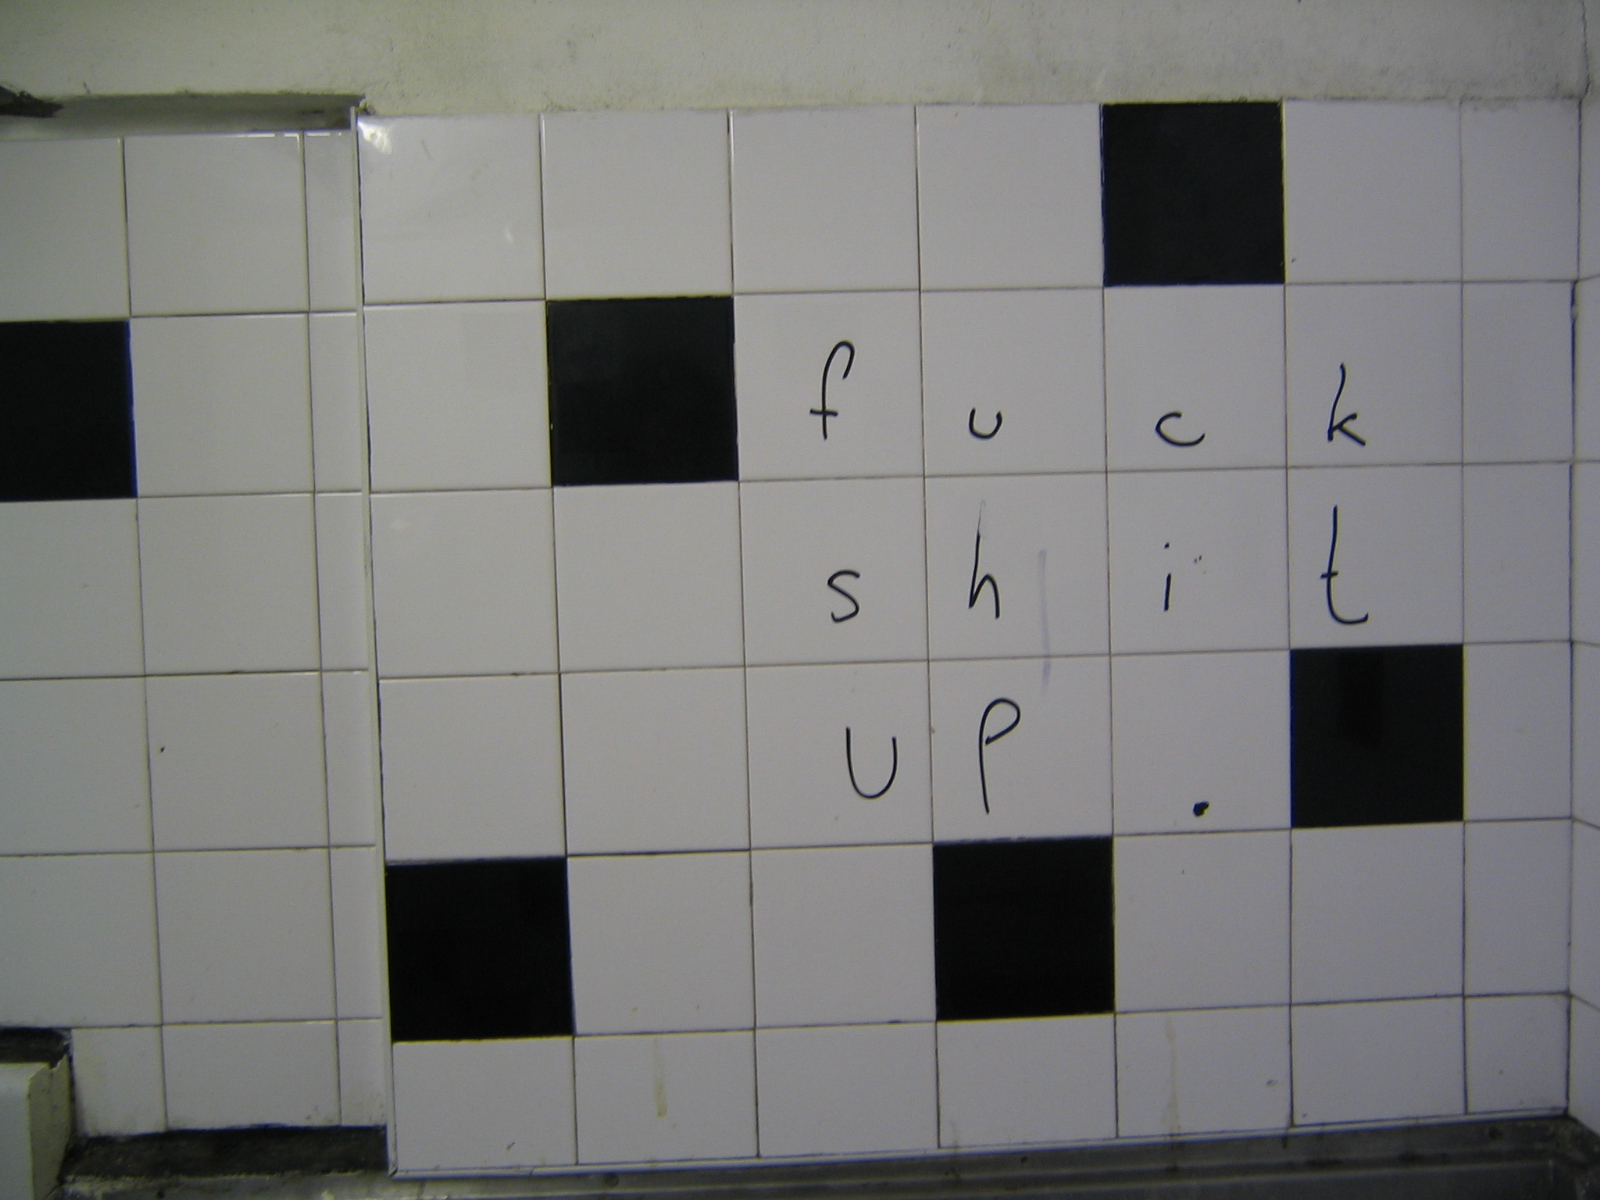 fuck
shit
UP.